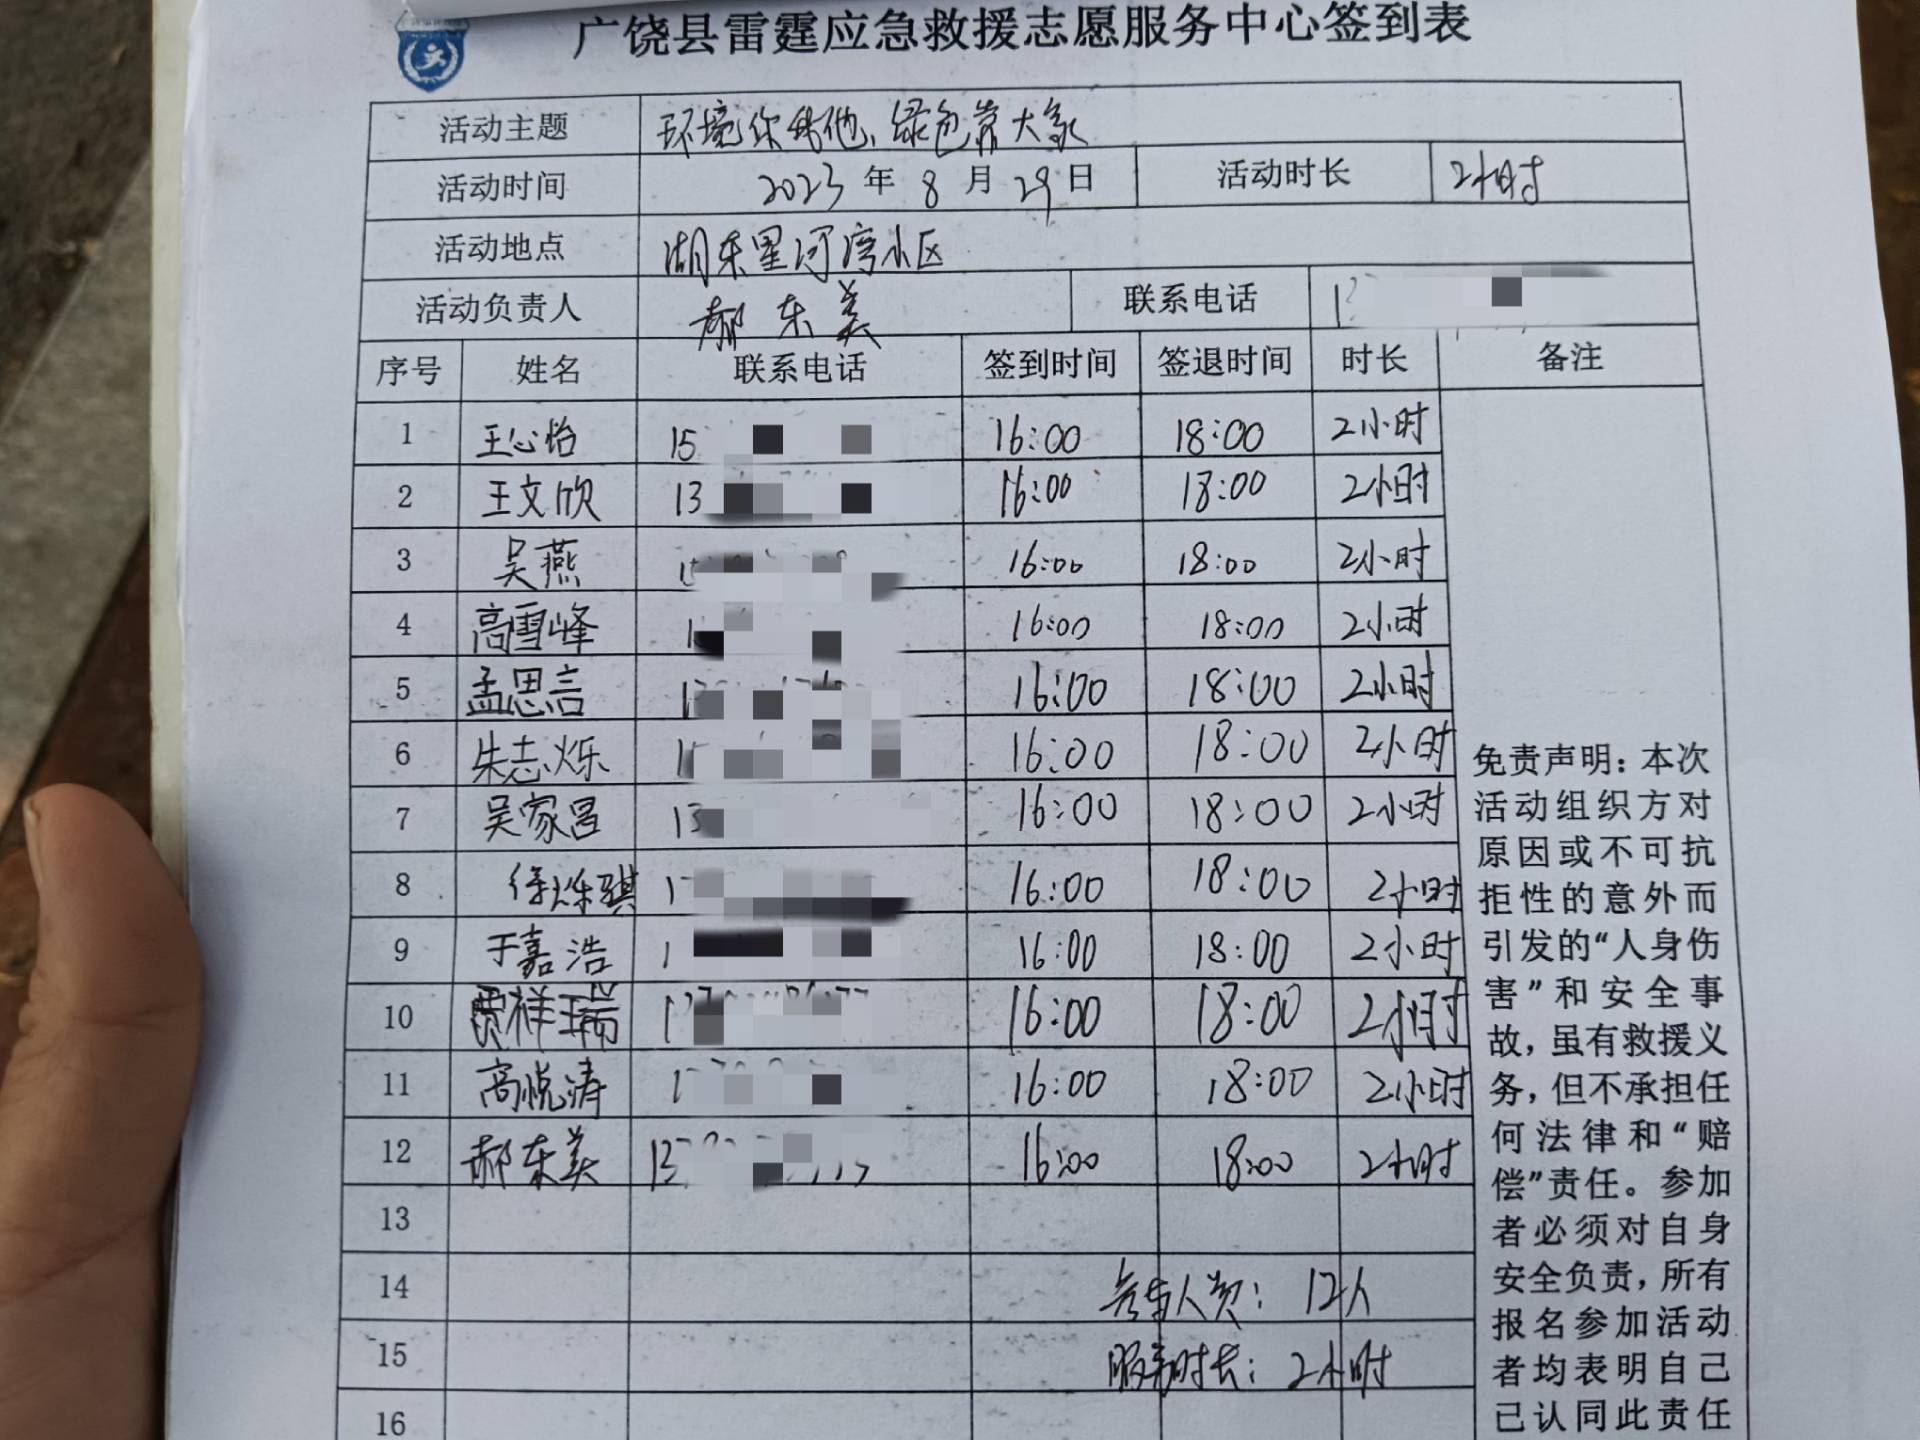 广饶县雷霆应急救援志愿服务中心签到表
活动主题 环境你我他、绿色靠大家
活动时间 2023 年 8 月 29 日 活动时长 2小时
活动地点 湖东星河湾小区
活动负责人 郝东美 联系电话 1
序号 姓名 联系电话 签到时间 签退时间 时长 备注
1 王心怡 15 16:00 18:00 2小时
2 王文欣 13 16:00 18:00 2小时
3 吴燕 1 16:00 18:00 2小时
4 高雪峰 1 16:00 18:00 2小时
5 孟思言 1 16:00 18:00 2小时
6 朱志烁 1 16:00 18:00 2小时
7 吴家昌 13 16:00 18:00 2小时
8 徐烁骐 1 16:00 18:00 2小时
9 于嘉浩 1 16:00 18:00 2小时
10 贾祥瑞 1 16:00 18:00 2小时
11 高悦涛 1 16:00 18:00 2小时
12 郝东美 13 16:00 18:00 2小时
13
14 参与人员: 12人
15 服务时长: 2小时
16
免责声明：本次
活动组织方对
原因或不可抗
拒性的意外而
引发的“人身伤
害”和安全事
故，虽有救援义
务，但不承担任
何法律和“赔
偿”责任。参加
者必须对自身
安全负责，所有
报名参加活动
者均表明自己
已认同此责任